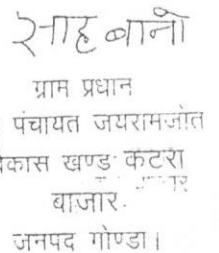 साह बानो
ग्राम प्रधान
पंचायत जयरामजोत
विकास खण्ड कटरा
बाजार.
जनपद गोण्डा।